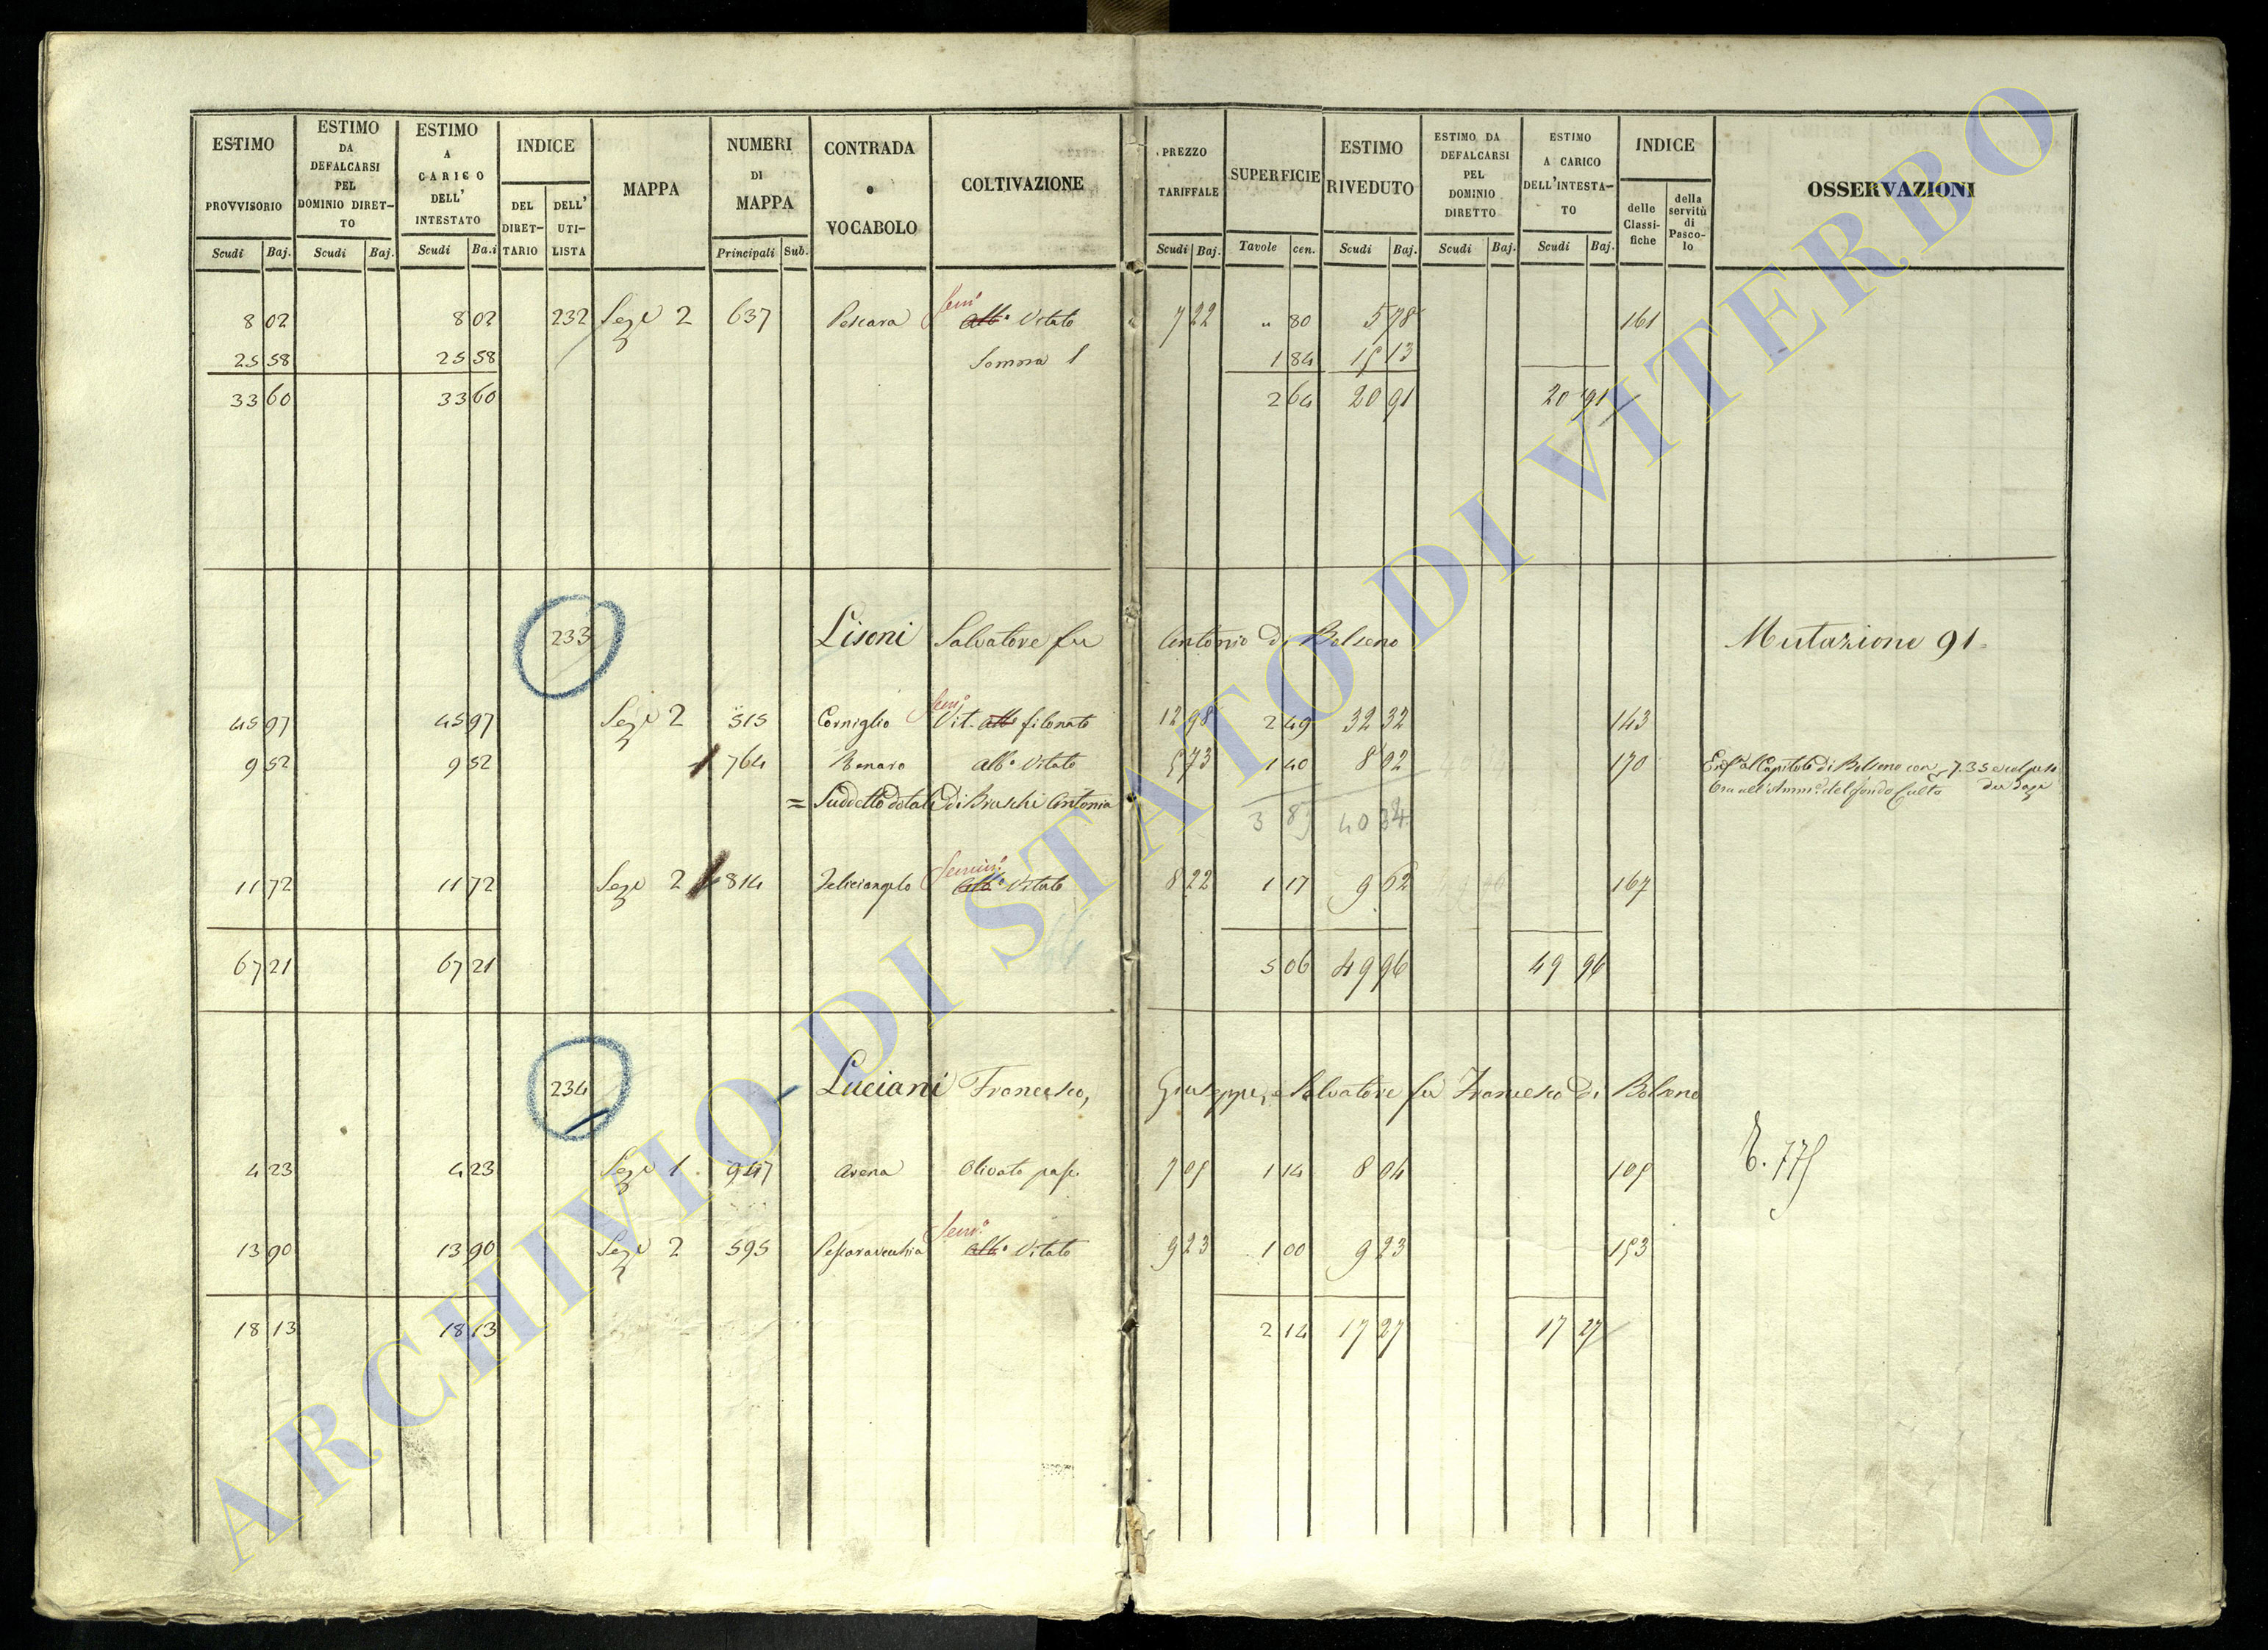 ESTIMO PROVVISORIO
ESTIMO DA DEFALCARSI PEL DOMINIO DIRET-TO
ESTIMO A CARICO DELL' INTESTATO
INDICE
DEL DIRET-TARIO
DELL' UTI-LISTA
MAPPA
NUMERI DI MAPPA
CONTRADA o VOCABOLO
COLTIVAZIONE
PREZZO TARIFFALE
SUPERFICIE
ESTIMO RIVEDUTO
ESTIMO DA DEFALCARSI PEL DOMINIO DIRETTO
ESTIMO A CARICO DELL'INTESTA-TO
INDICE
delle Classi-fiche
della servitù di Pasco-lo
OSSERVAZIONI
Scudi Baj. Scudi Baj. Scudi Ba.i Principali Sub. Scudi Baj. Tavole cen. Scudi Baj. Scudi Baj. Scudi Baj.
8 02 8 02 232 Sez.e 2 637 Pescara Semi alb.o Vitato 7 22 " 80 5 78 161
25 58 25 58 Somma 1 84 15 13
33 60 33 60 2 64 20 91 20 91
233 Lisoni Salvatore fu Antonio di Bolseno Mutazione 91
45 97 45 97 Sez.e 2 515 Corniglio Vit. Sem.o alb.o filonato 12 98 2 49 32 32 143
9 52 9 52 764 alb.o Vitato 5 73 1 40 8 02 170 al Capitolo di Bolseno con 7.35
= Suddetto dotali di Bruschi Antonia del fondo Culto
3 89 40 34
11 72 11 72 Sez.e 2 814 Feliciangelo Semin.o alb.o Vitato 8 22 1 17 9 62 167
67 21 67 21 5 06 49 96 49 96
234 Luciani Francesco, Giuseppe, e Salvatore fu Francesco di Bolseno
4 23 4 23 Sez.e 1 947 Arena Olivato pas. 7 05 1 14 8 04 105 775
13 90 13 90 Sez.e 2 595 Pescaravecchia Sem.o alb.o Vitato 9 23 1 00 9 23 153
18 13 18 13 2 14 17 27 17 27
ARCHIVIO DI STATO DI VITERBO